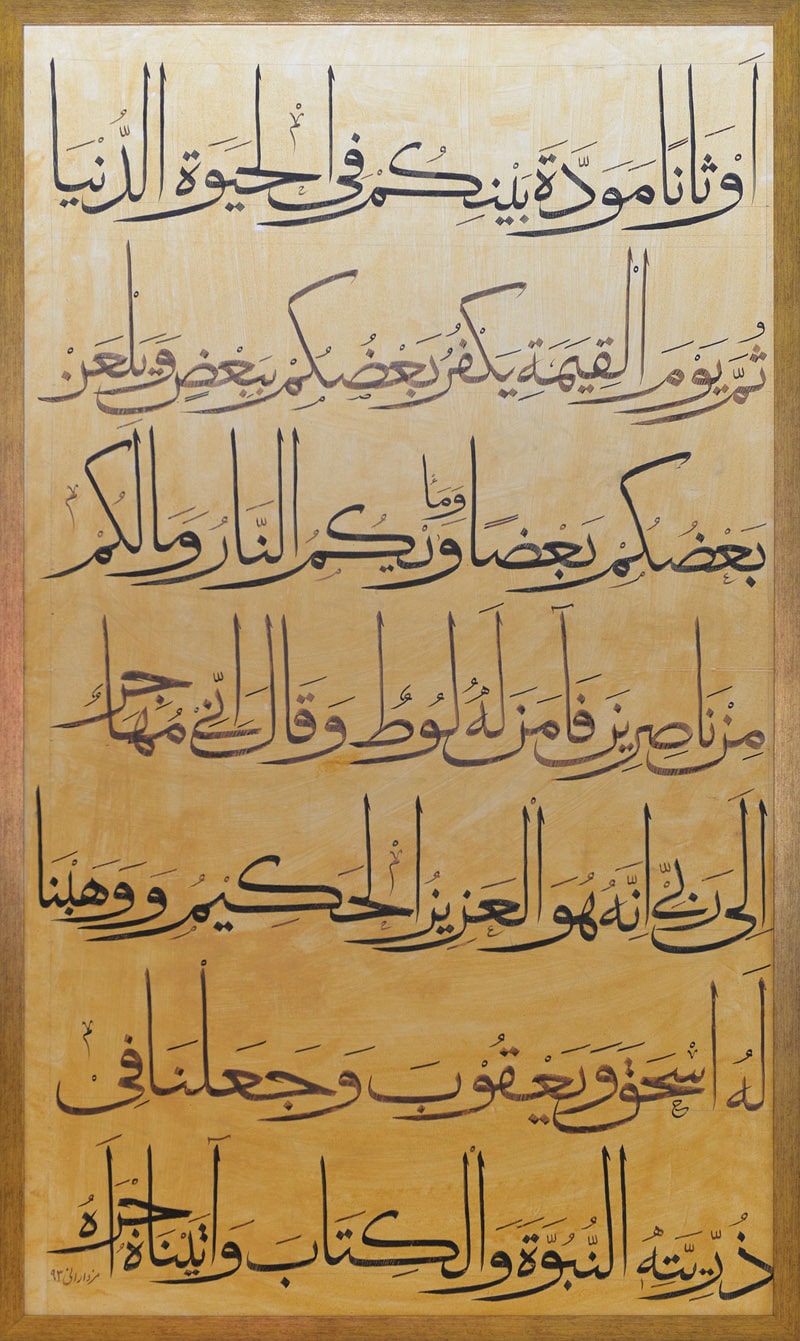 اَوْثَانًا مَوَدَّةَ بَيْنِكُمْ فِى الْحَيٰوةِ الدُّنْيَا
ثُمَّ يَوْمَ الْقِيٰمَةِ يَكْفُرُ بَعْضُكُمْ بِبَعْضٍ وَيَلْعَنُ
بَعْضُكُمْ بَعْضًا وَمَأْوٰيكُمُ النَّارُ وَمَا لَكُمْ
مِنْ نَاصِرِينَ فَآمَنَ لَهُ لُوطٌ وَقَالَ اِنِّى مُهَاجِرٌ
اِلَى رَبِّى اِنَّهُ هُوَ الْعَزِيزُ الْحَكِيمُ وَوَهَبْنَا
لَهُ اِسْحَقَ وَيَعْقُوبَ وَجَعَلْنَا فِى
ذُرِّيَّتِهِ النُّبُوَّةَ وَالْكِتَابَ وَآتَيْنَاهُ اَجْرَهُ